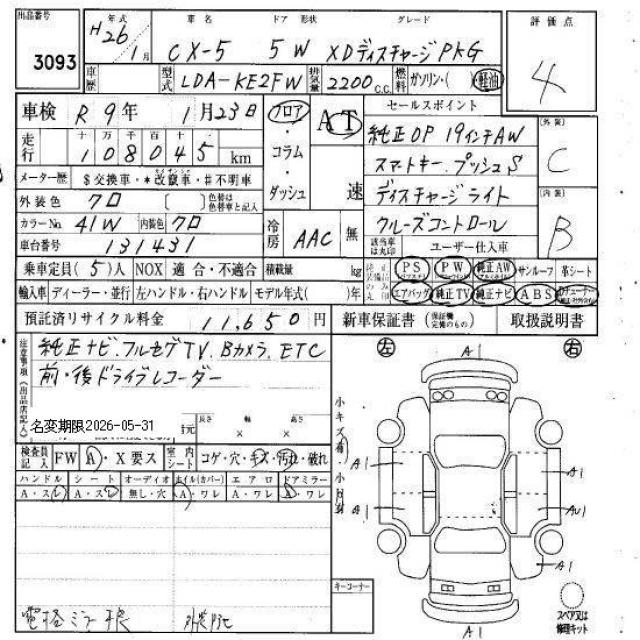 出品番号 年式 車名 ドア 形状 グレード 評価点
3093 H26年 1月 CX-5 5W XDディスチャージPKG 4
車歴 型式 LDA-KE2FW 排気量 2200 C.C. 燃料 ガソリン・( )・軽油
車検 R 9年 1月23日 フロア・コラム・ダッシュ AT 速 セールスポイント
走行 十 万 千 百 十 108045 km 純正OP 19インチAW 外装 C
メーター歴 $交換車・*改竄車・#不明車 スマートキー.プッシュS
外装色 クロ [ ] 色替は色替車と記入 ディスチャージライト 内装 B
カラーNo. 41W 内装色 クロ 冷房 AAC 無 クルーズコントロール
車台番号 131431 該当車は丸印 ユーザー仕入車
乗車定員(5)人 NOX 適合・不適合 積載量 kg PS PW 純正AW サンルーフ 革シート
輸入車 ディーラー・並行 左ハンドル・右ハンドル モデル年式( )年 エアバッグ 純正TV 純正ナビ ABS
預託済リサイクル料金 11,650円 新車保証書(保証機 完備のもの) 取扱説明書
注意事項(出品店記入) 純正ナビ.フルセグTV.Bカメラ.ETC
前・後ドライブレコーダー
名変期限2026-05-31
長さ 幅 高さ
× ×
検査員記入 FW A・X要ス 室内シート コゲ・穴・キズ・汚れ・破れ
ハンドル シート オーディオ ホイル(カバー) エアロ ドアミラー
A・スレ A・スレ 無し・穴 A・ワレ A・ワレ A・ワレ
左 右
A1
A1 A1
A1 AU1
A1
A1
キーコーナー
スペア又は修理キット